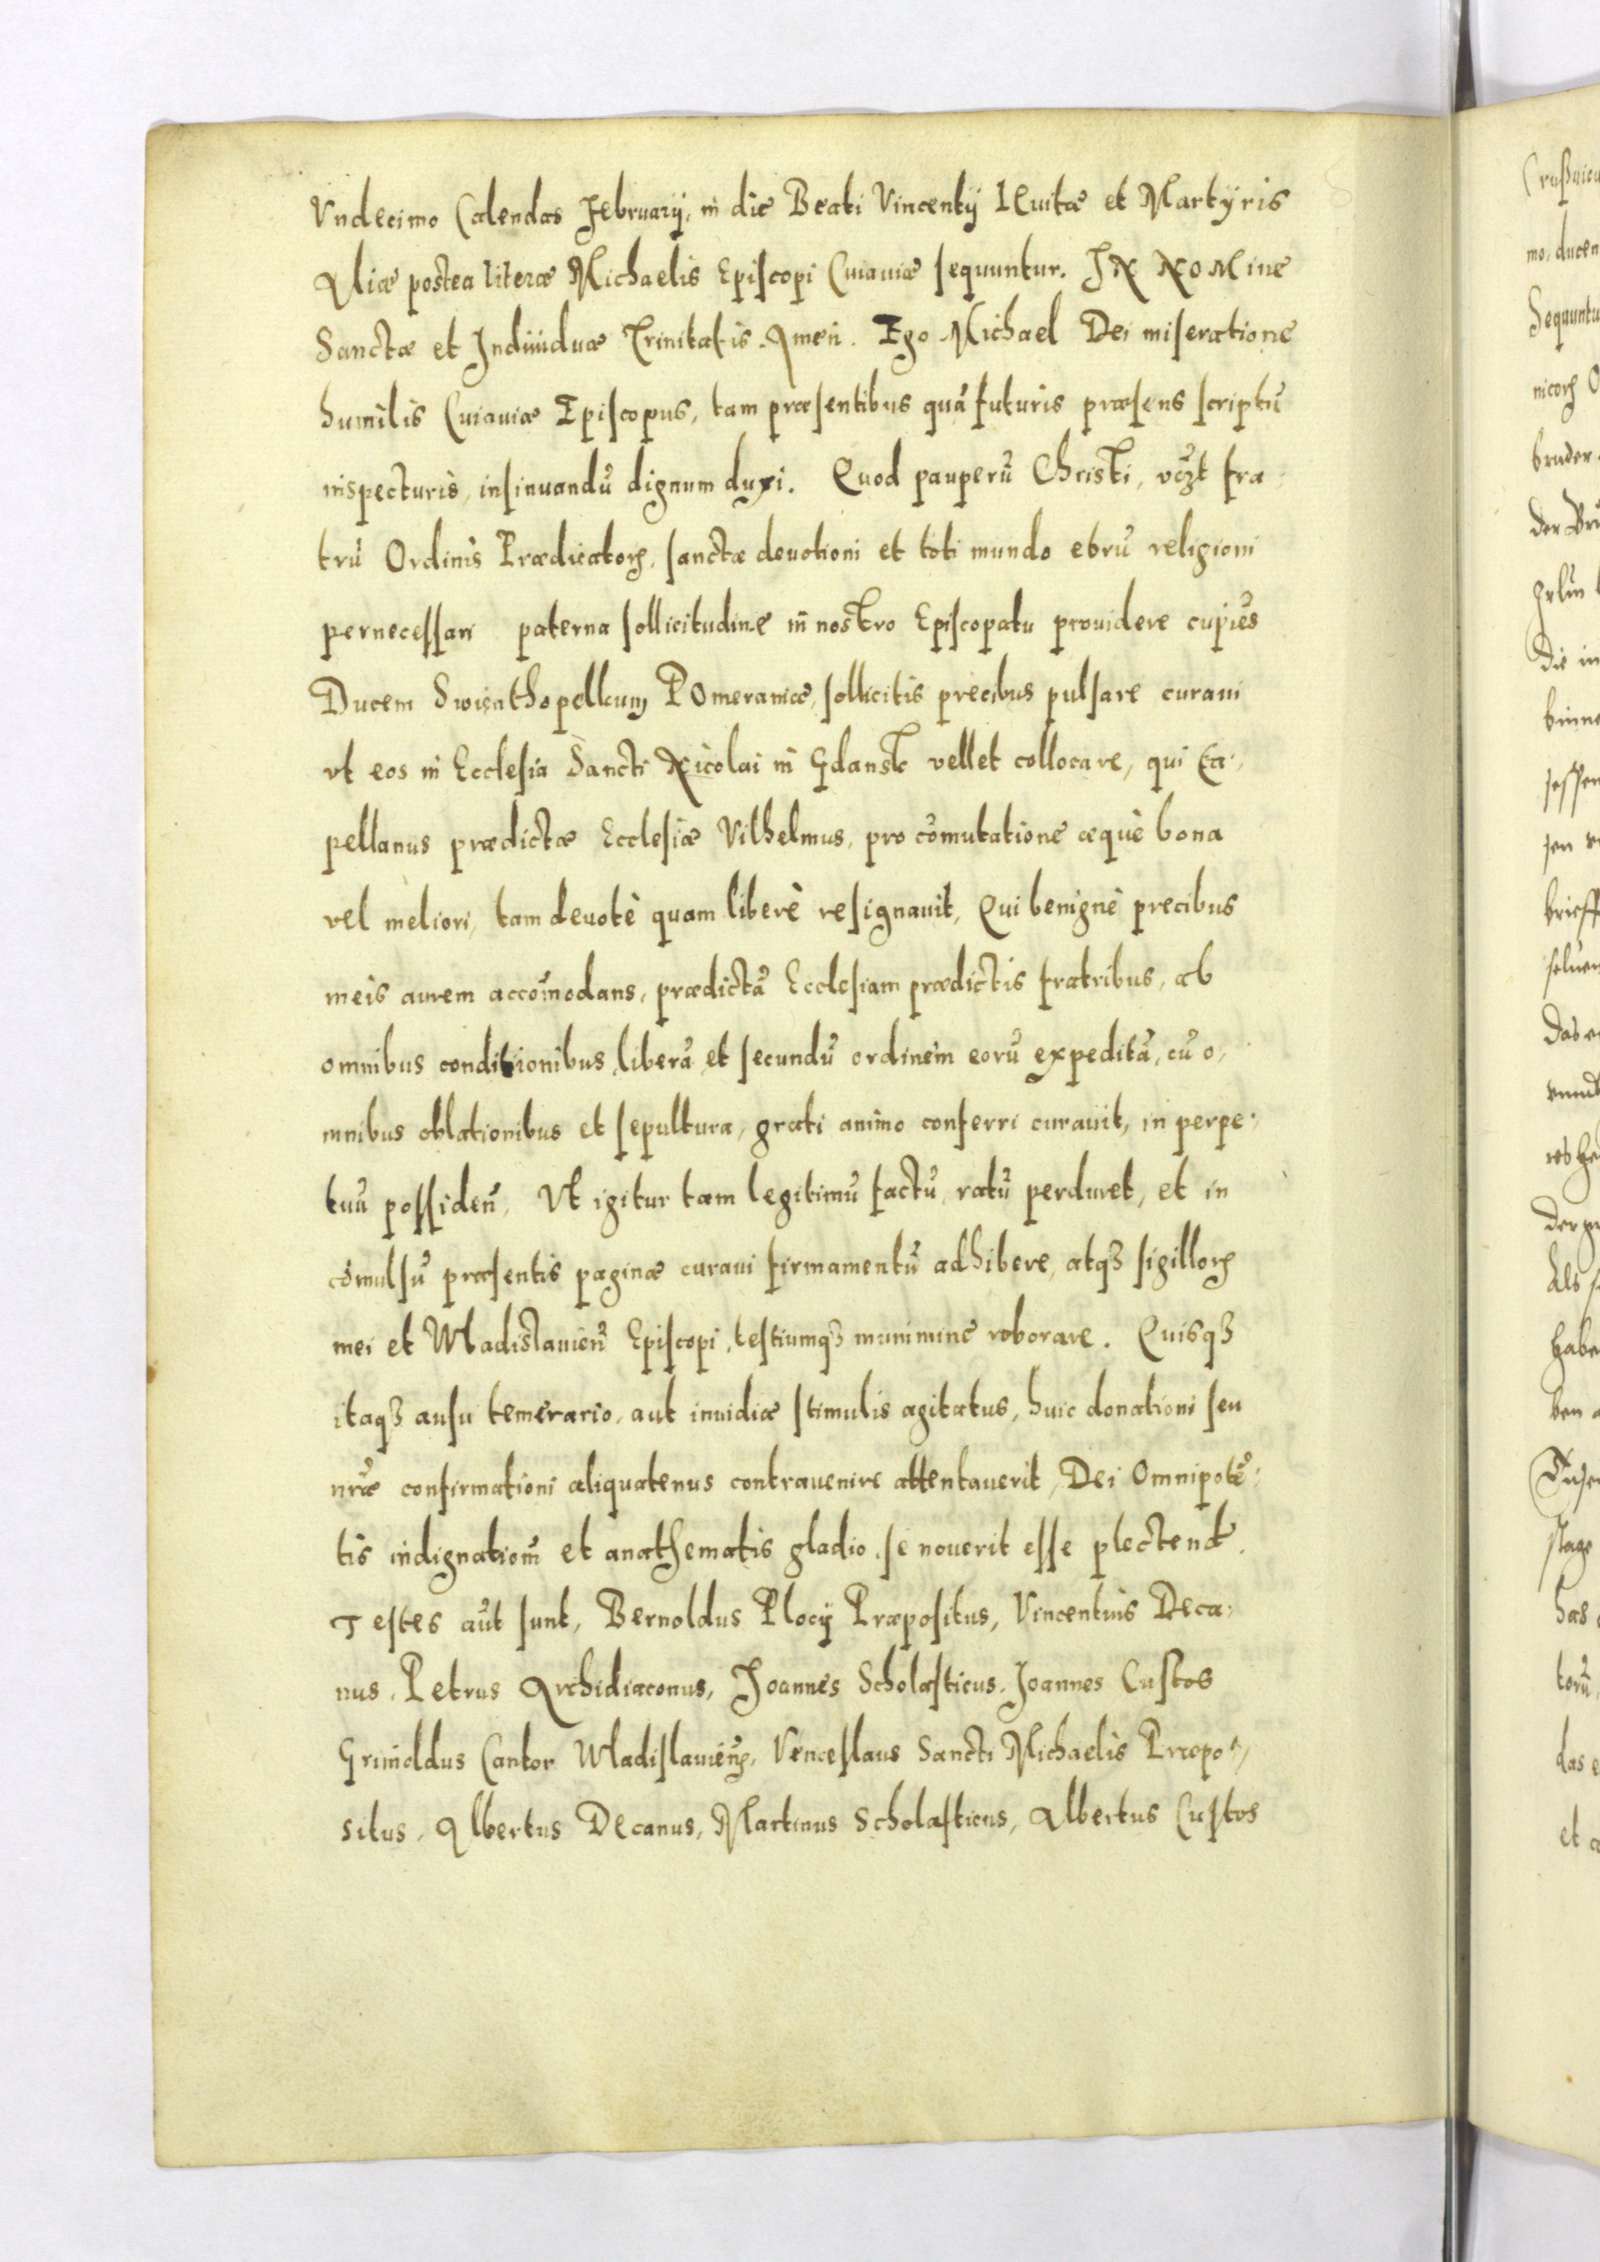 Vndecimo Calendas Februarij, in die Beati Vincentij Leuitæ et Martyris
Aliæ postea literæ Michaelis Episcopi Cuiauiæ sequuntur. IN NOMine
Sanctæ et Indiuiduæ Trinitatis. Amen. Ego Michael Dei miseratione
humilis Cuiauiæ Episcopus, tam præsentibus quã futuris præsens scriptũ
inspecturis, insinuandũ dignum duxi. Quod pauperũ Christi, vczt fra-
trũ Ordinis Prædicatorꝝ, sanctæ deuotioni et toti mundo eorũ religioni
pernecessari paterna sollicitudine in nostro Episcopatu prouidere cupiẽs
Ducem Swienthopelkum POmeraniæ, sollicitis precibus pulsare curaui
vt eos in Ecclesia Sancti Nicolai in Gdansk vellet collocare, qui Ca-
pellanus prædictæ Ecclesiæ Vilhelmus, pro cõmutatione æquè bona
vel meliori, tam deuotè quam liberè resignauit, Qui benignè precibus
meis aurem accõmodans, prædictã Ecclesiam prædictis fratribus, ab
omnibus conditionibus liberã et secundũ ordinem eorũ expeditã, cũ o-
mnibus oblationibus et sepultura, grati animo conferri curauit, in perpe-
tuũ possideñ, Vt igitur tam legitimũ factũ, ratũ perduret, et in
cõmulsũ præsentis paginæ curaui firmamentũ adhibere, atqꝫ sigillorꝝ
mei et Wladislauieñ Episcopi, testiumqꝫ munimine roborare. Quisqꝫ
itaqꝫ ausu temerario, aut inuidiæ stimulis agitatus, huic donationi seu
nr̃æ confirmationi aliquatenus contrauenire attentauerit, Dei Omnipotẽ-
tis indignationẽ et anathematis gladio, se nouerit esse plectend.
Testes aũt sunt, Bernoldus Plocij Præpositus, Vincentius Deca-
nus, Petrus Archidiaconus, Joannes Scholasticus, Joannes Custos
Grimoldus Cantor Wladislauieñ, Venceslaus Sancti Michaelis Præpo-
situs, Albertus Decanus, Martinus Scholasticus, Albertus Custos